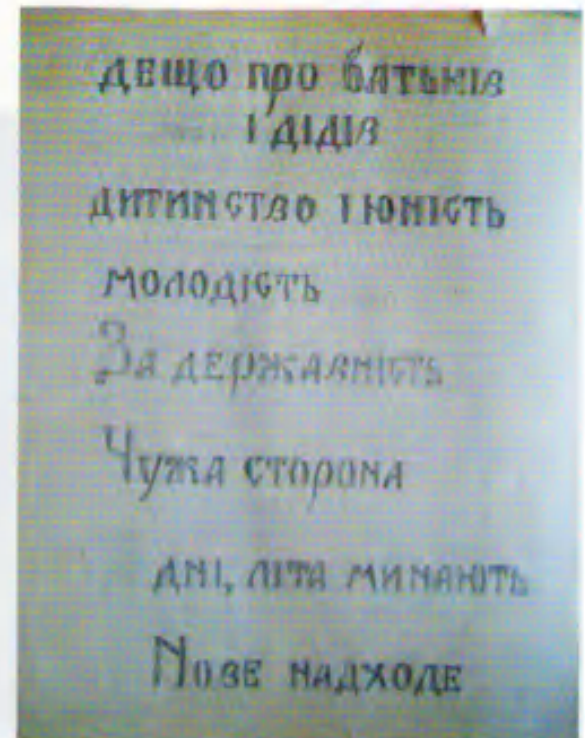 ДЕЩО ПРО БАТЬКІВ
І ДІДІВ
ДИТИНСТВО І ЮНІСТЬ
МОЛОДІСТЬ
За ДЕРЖАВНІСТЬ
Чужа сторона
ДНІ, ЛІТА МИНАЮТЬ
Нове надходе